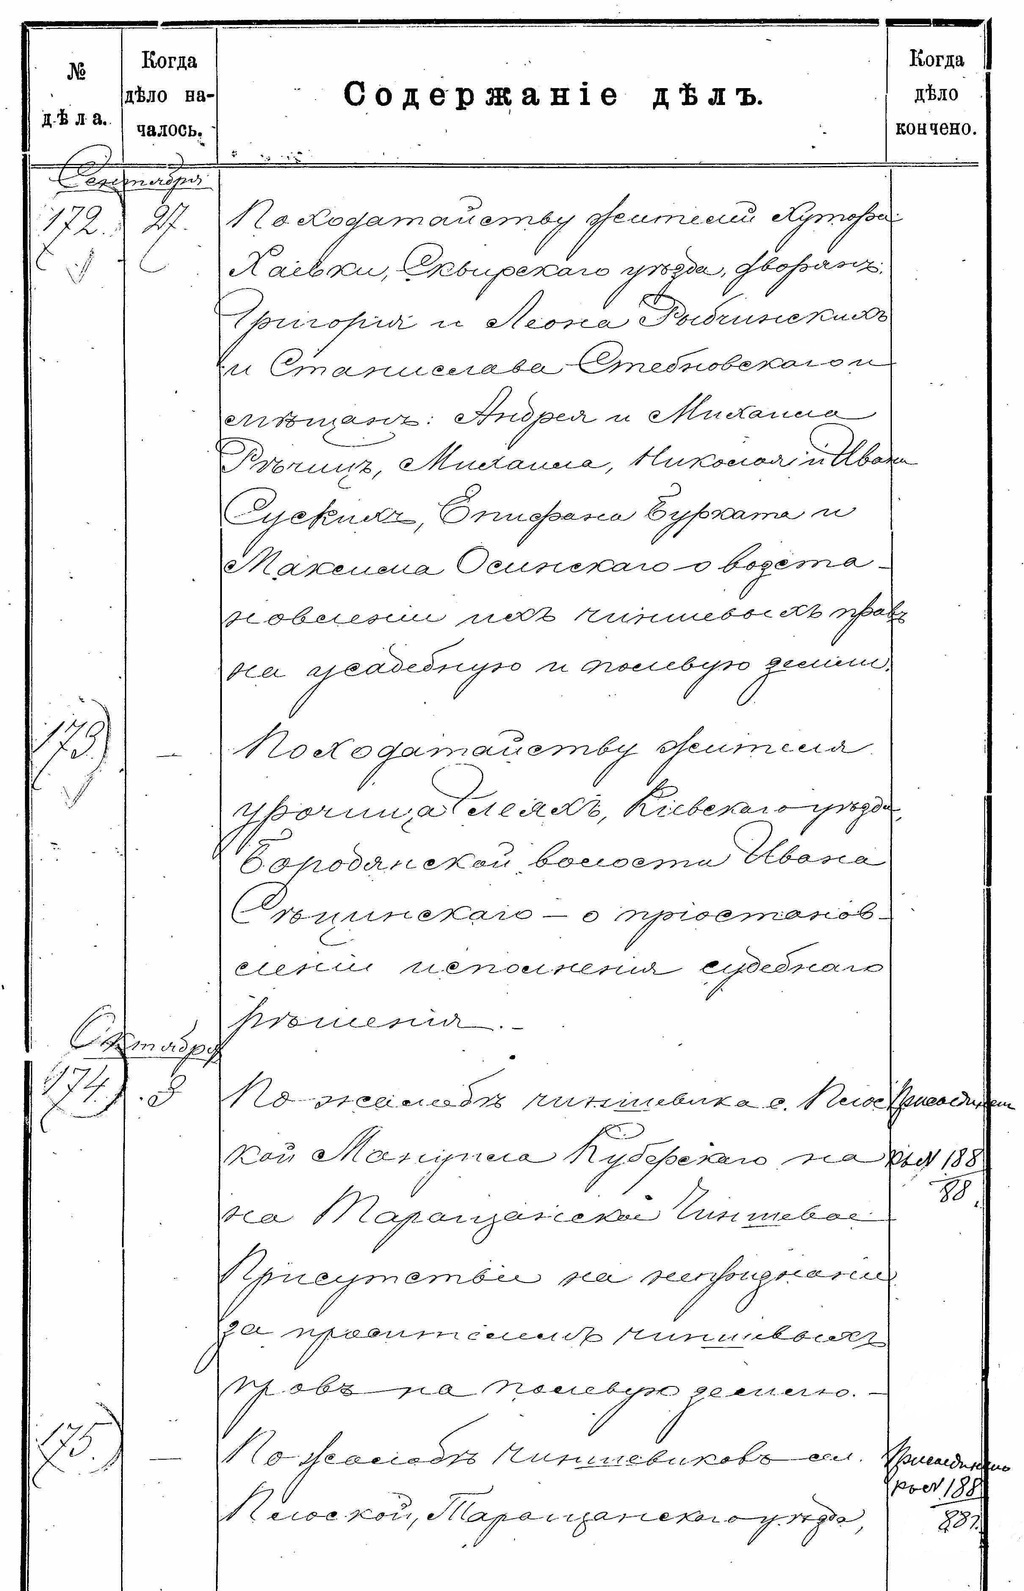 № дѣла.
Когда дѣло началось.
Содержаніе дѣлъ.
Когда дѣло кончено.
Сентября
172. 27. По ходатайству жителей хутора
Хаевки, Сквирскаго уѣзда, дворянъ:
Григорія и Леона Рыбчинскихъ
и Станислава Стебновскаго и
мѣщанъ: Андрея и Михаила
Рѣчицъ, Михаила, Николая и Ивана
Сускихъ, Епифана Бурката и
Максима Осинскаго о возста-
новленіи ихъ чиншевыхъ правъ
на усадебную и полевую земли.
173) — По ходатайству жителя
урочища Глеяхъ, Кіевскаго уѣзда,
Бородянской волости Ивана
Сѣцинскаго — о пріостанов-
леніи исполненія судебнаго
рѣшенія. —
Октября
174) 3 По жалобѣ чиншевика с. Плос-
кой Мануила Куберскаго на
на Таращанское Чиншевое
Присутствіе на непризнаніе
за просителемъ чиншевыхъ
правъ на полевую землю. —
Присоединено
къ № 188
88
175.) — По жалобѣ чиншевиковъ сел.
Плоской, Таращанскаго уѣзда,
Присоединено
къ № 188
88